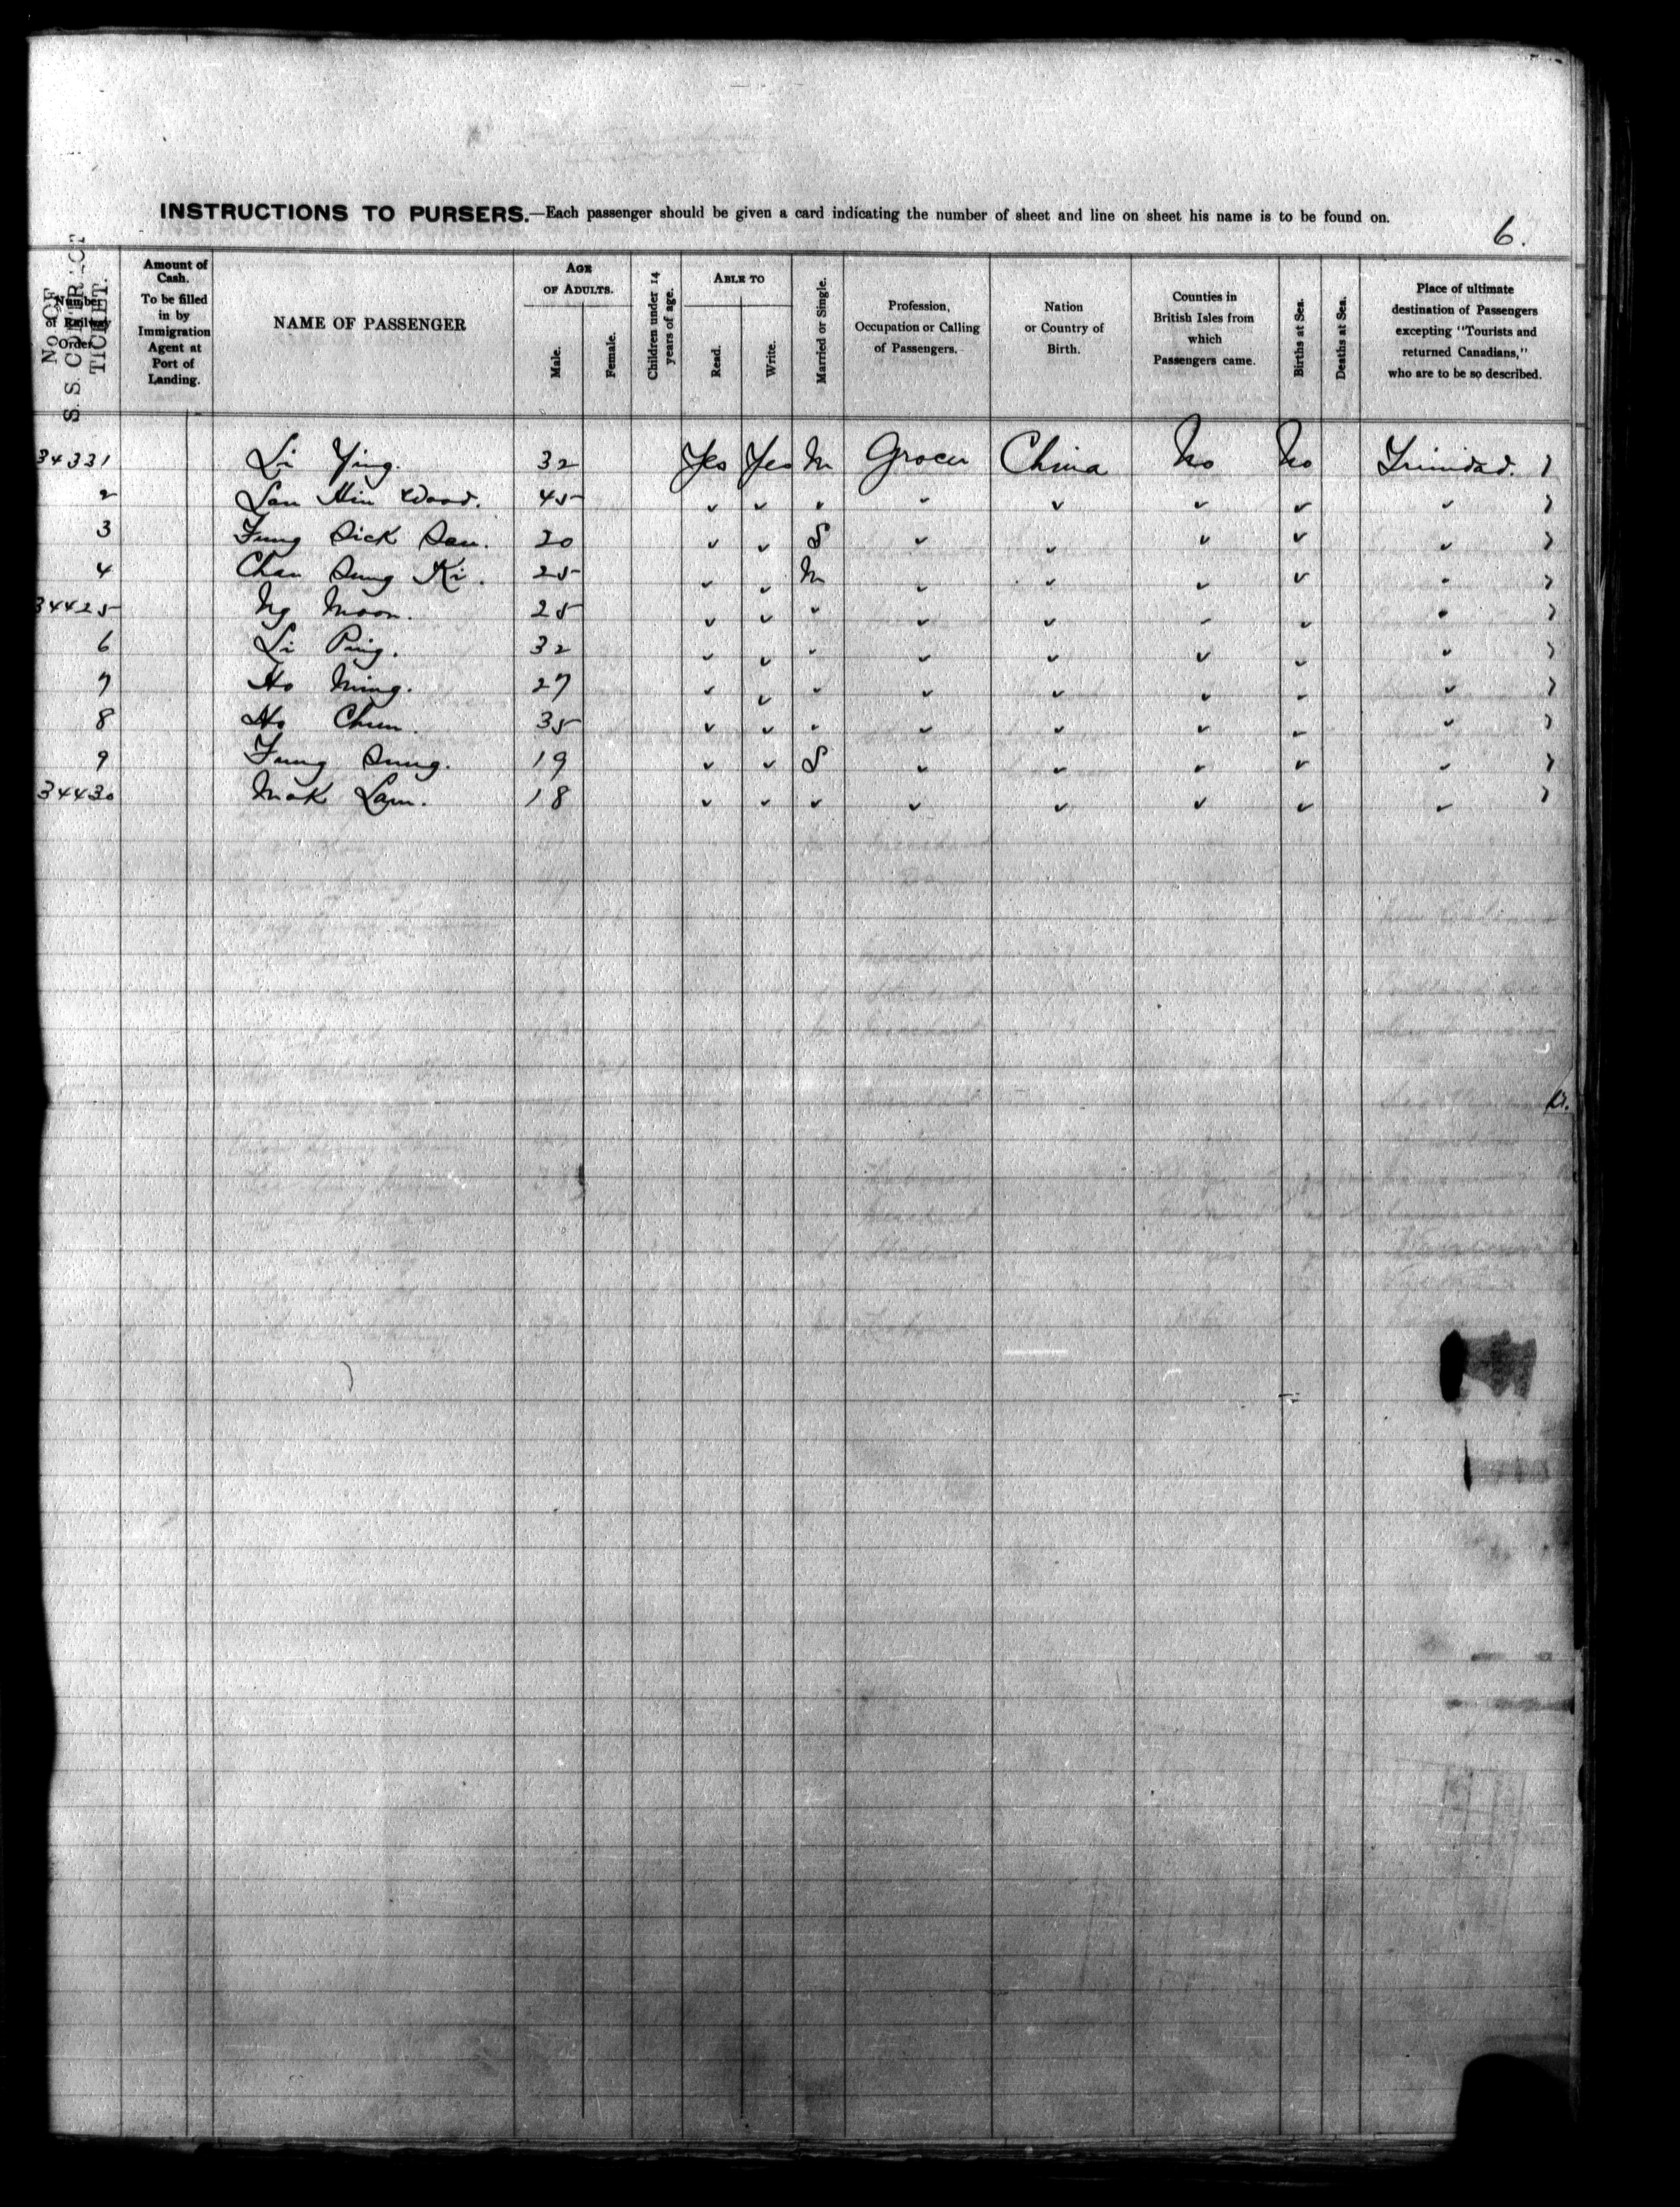 INSTRUCTIONS TO PURSERS.—Each passenger should be given a card indicating the number of sheet and line on sheet his name is to be found on.
6.
No. OF S. S. CONTRACT TICKET.
Number of Railway Order.
Amount of Cash. To be filled in by Immigration Agent at Port of Landing.
NAME OF PASSENGER
AGE OF ADULTS.
Male.
Female.
Children under 14 years of age.
ABLE TO
Read.
Write.
Married or Single.
Profession, Occupation or Calling of Passengers.
Nation or Country of Birth.
Counties in British Isles from which Passengers came.
Births at Sea.
Deaths at Sea.
Place of ultimate destination of Passengers excepting "Tourists and returned Canadians," who are to be so described.
34331 Li Ying. 32 Yes Yes M Grocer China No No Trinidad.
2 Lau Min Wood. 45 " " " " " " " "
3 Fung Sick Sau. 20 " " S " " " " "
4 Chan Sung Ki. 25 " " M " " " " "
34425 Ng Moon. 25 " " " " " " " "
6 Li Ping. 32 " " " " " " " "
7 Ho Ming. 27 " " " " " " " "
8 Ho Chun. 35 " " " " " " " "
9 Fung Sung. 19 " " S " " " " "
34430 Mok Lam. 18 " " " " " " " "